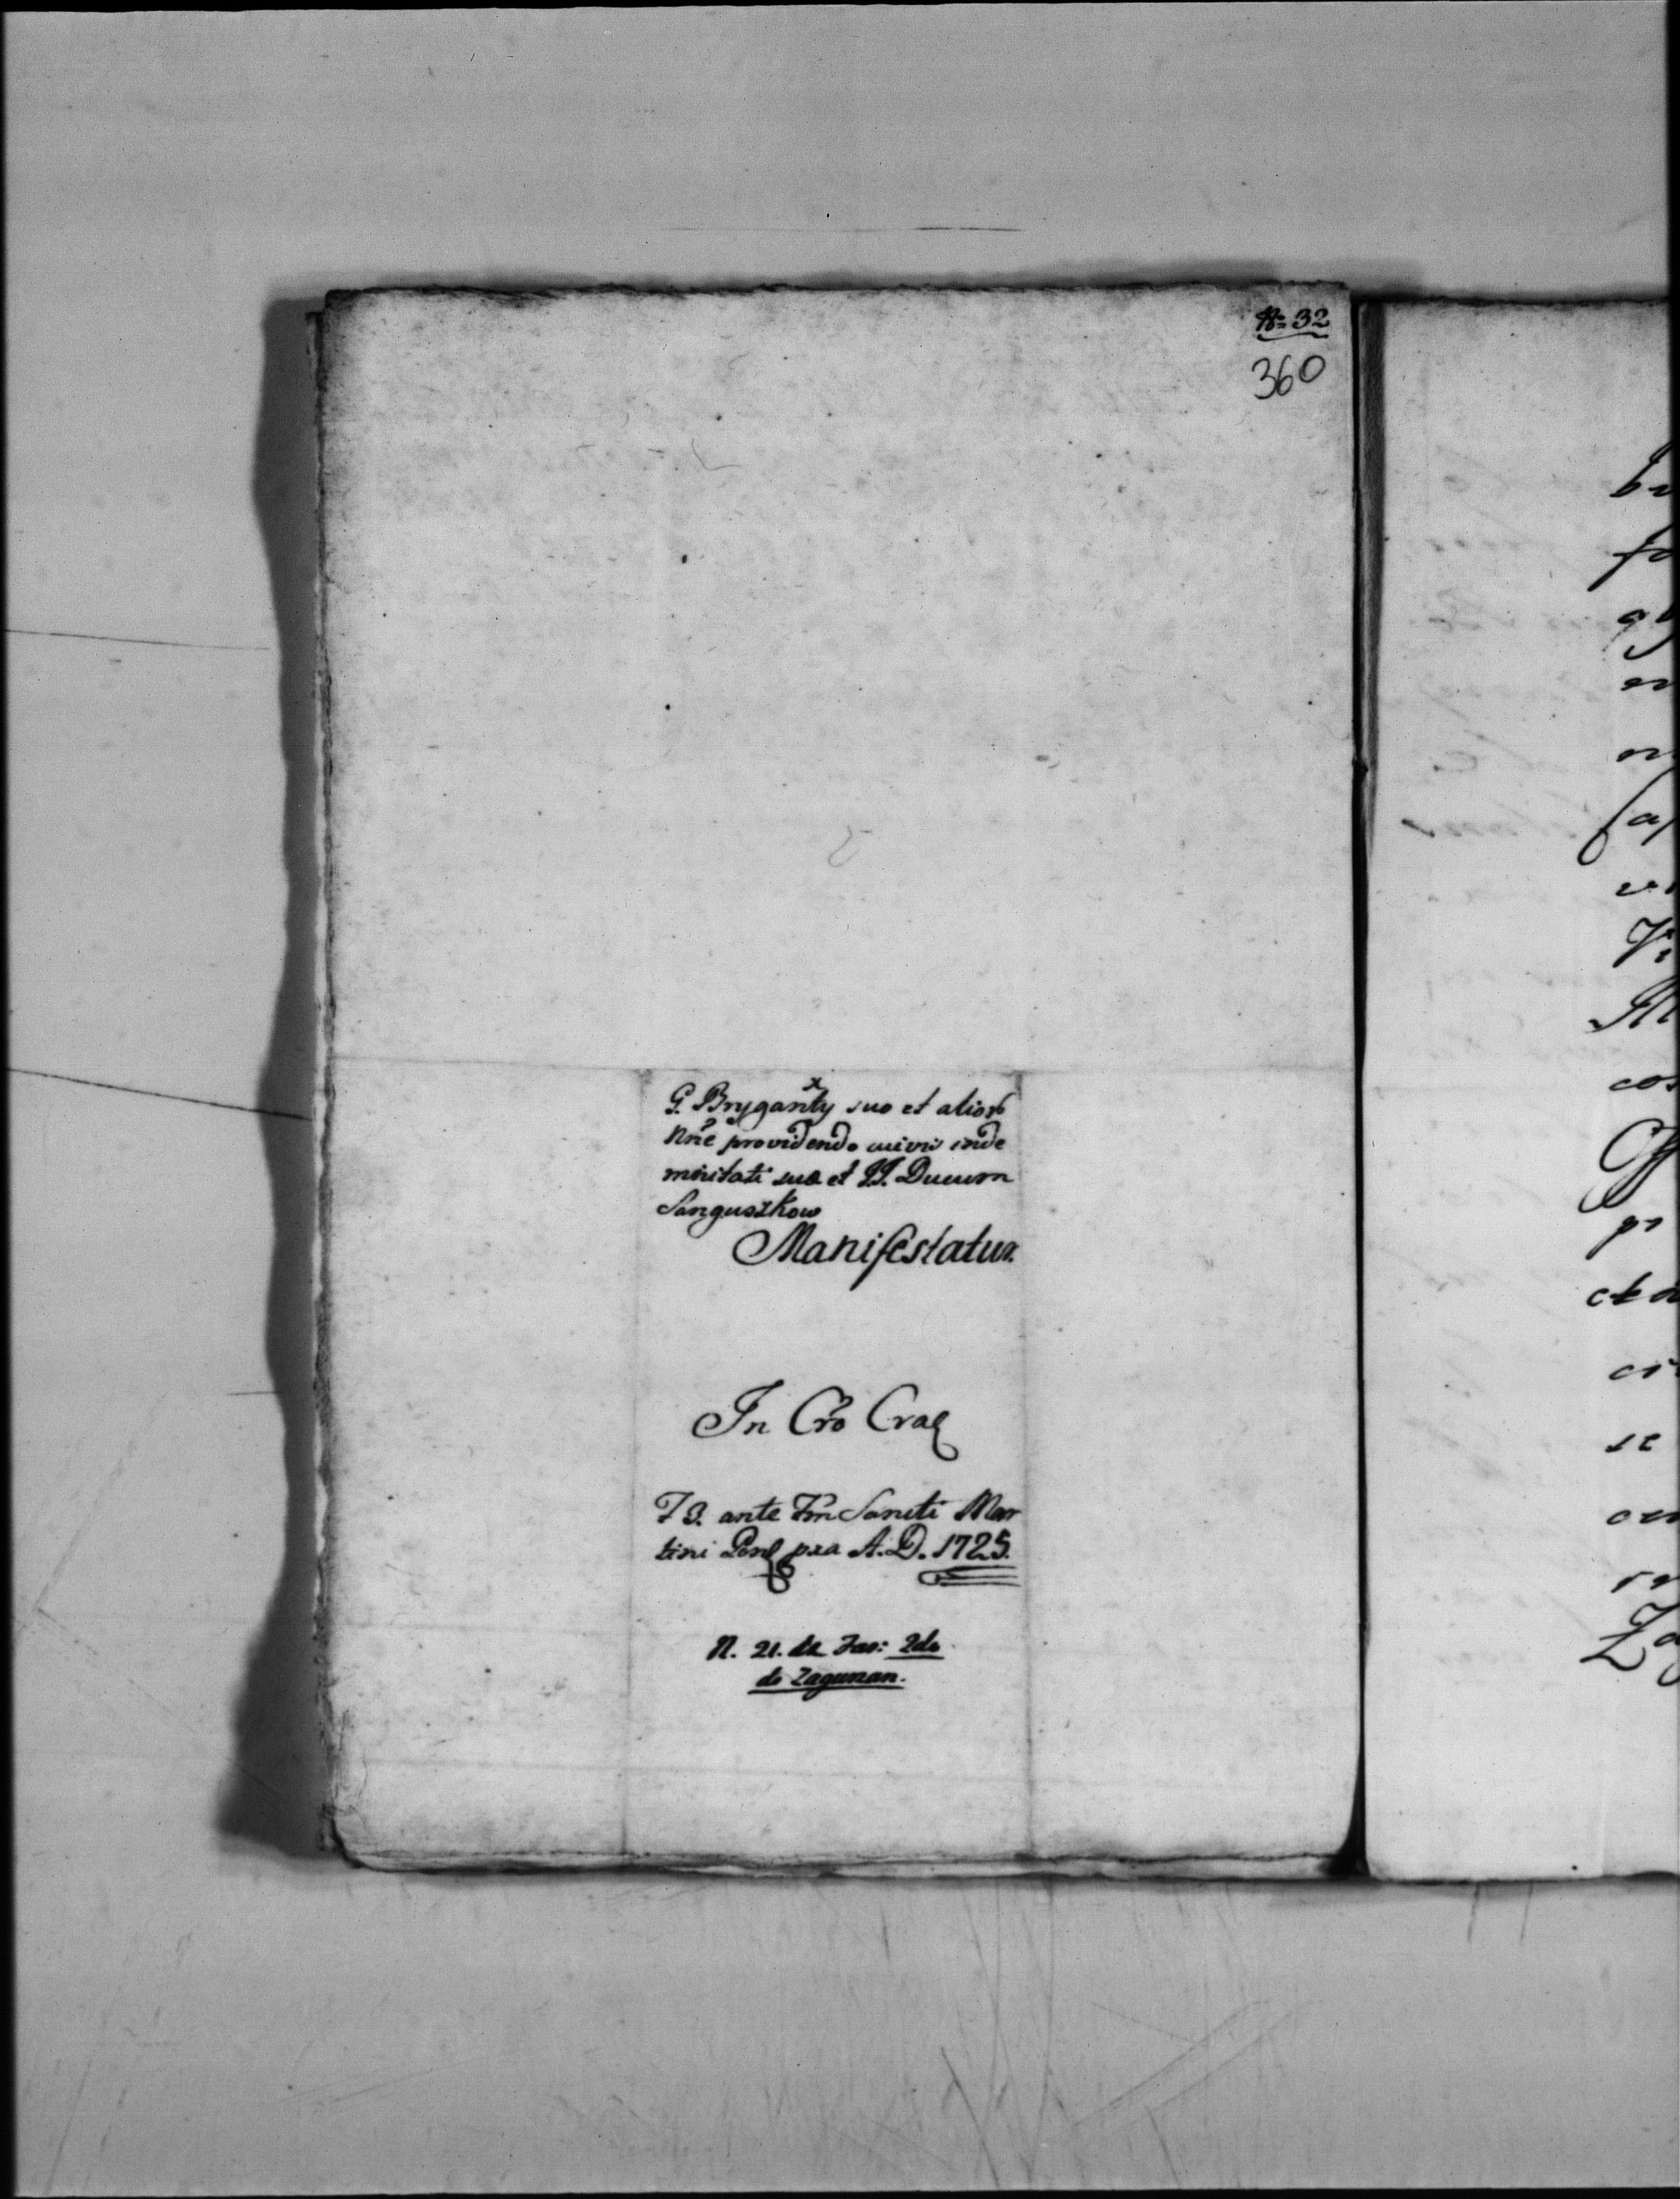 No 32
360
G. Bryganty suo et alior
Nne providendo cuivis inde
mnitati suæ et JJ. Ducum
Sanguszkow
Manifestatur.
In Cro Crac
F 3. ante Fm Sancti Mar
tini Pont pxa A.D. 1725.
N. 21. de Fas: 2do
do Zagunan.